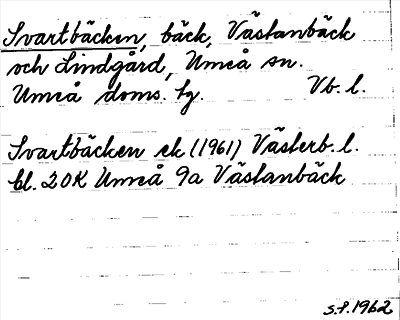 Svartbäcken, bäck, Västanbäck
och Lindgård, Umeå sn.
Umeå doms. tg. Vb. l.
Svartbäcken ek (1961) Västerb. l.
bl. 20K Umeå 9a Västanbäck
S.f. 1962